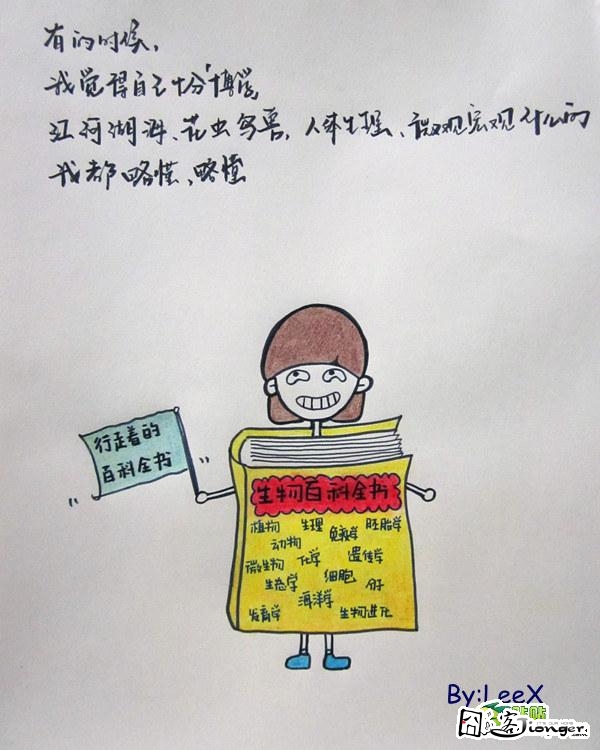 有的时候，
我觉得自己十分博学
江河湖海、花虫鸟兽，人体生理、微观宏观什么的
我都略懂、略懂
行走着的
百科全书
生物百科全书
植物 生理 免疫学 胚胎学
动物
微生物 化学 遗传学
生态学 细胞 分子
海洋学
发育学 生物进化
By:LeeX
囧客 Jionger.com